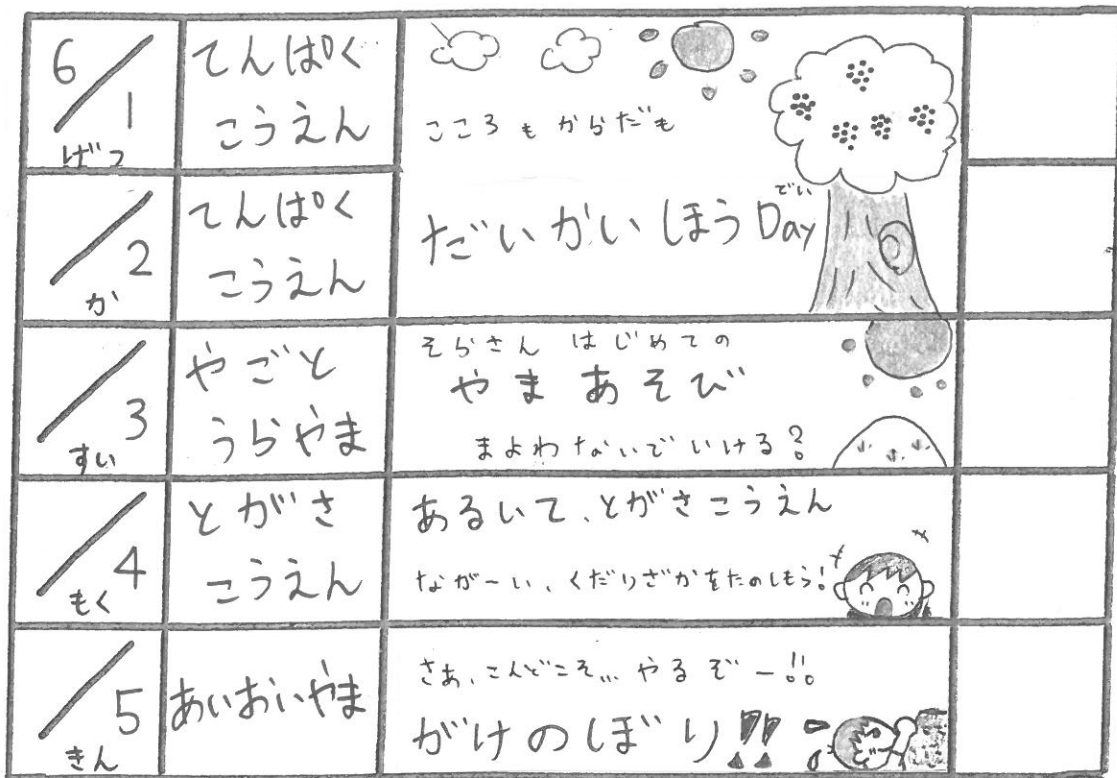 6/1
げつ
てんぱく
こうえん
こころもからだも
だいかいほうDay
でい
/2
か
てんぱく
こうえん
/3
すい
やごと
うらやま
そらさん はじめての
やまあそび
まよわないでいける?
/4
もく
とがさ
こうえん
あるいて、とがさこうえん
ながーい、くだりざかをたのしもう!
/5
きん
あいおいやま
さあ、こんどこそ... やるぞー!!
がけのぼり!!